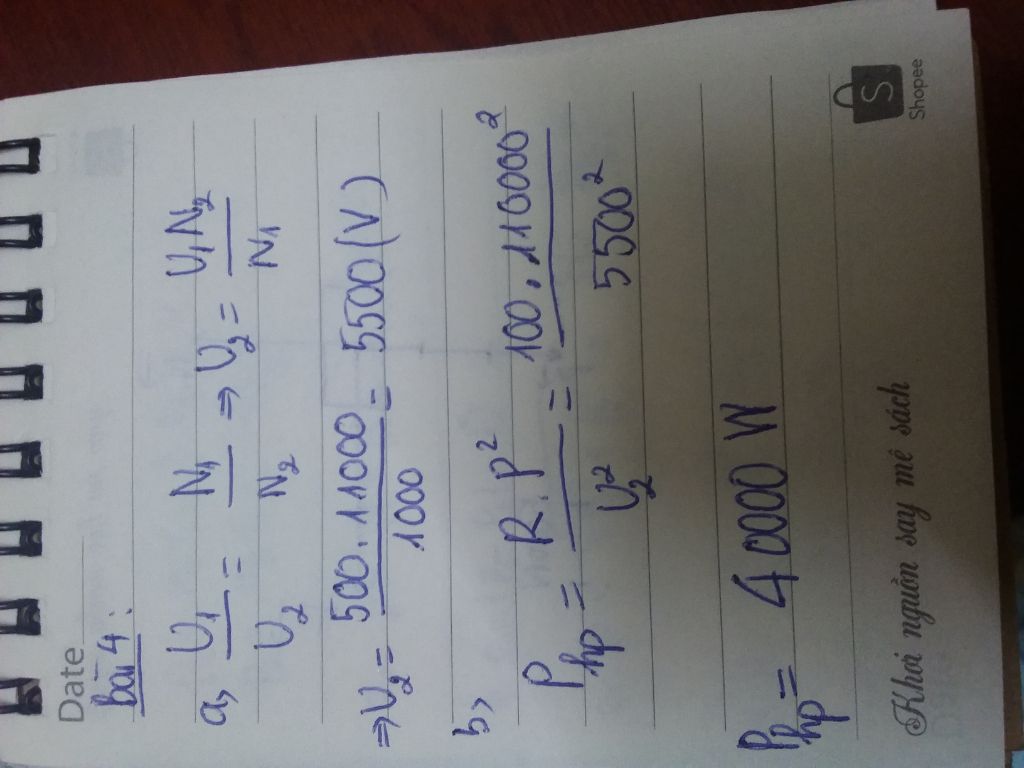 Date
bài 4:
a, U₁/U₂ = N₁/N₂ => U₂ = U₁N₂/N₁
=> U₂ = 500.11000/1000 = 5500(V)
b,
P_hp = R.P²/U₂² = 100.110000²/5500²
P_hp = 40000 W
Khơi nguồn say mê sách
S
Shopee